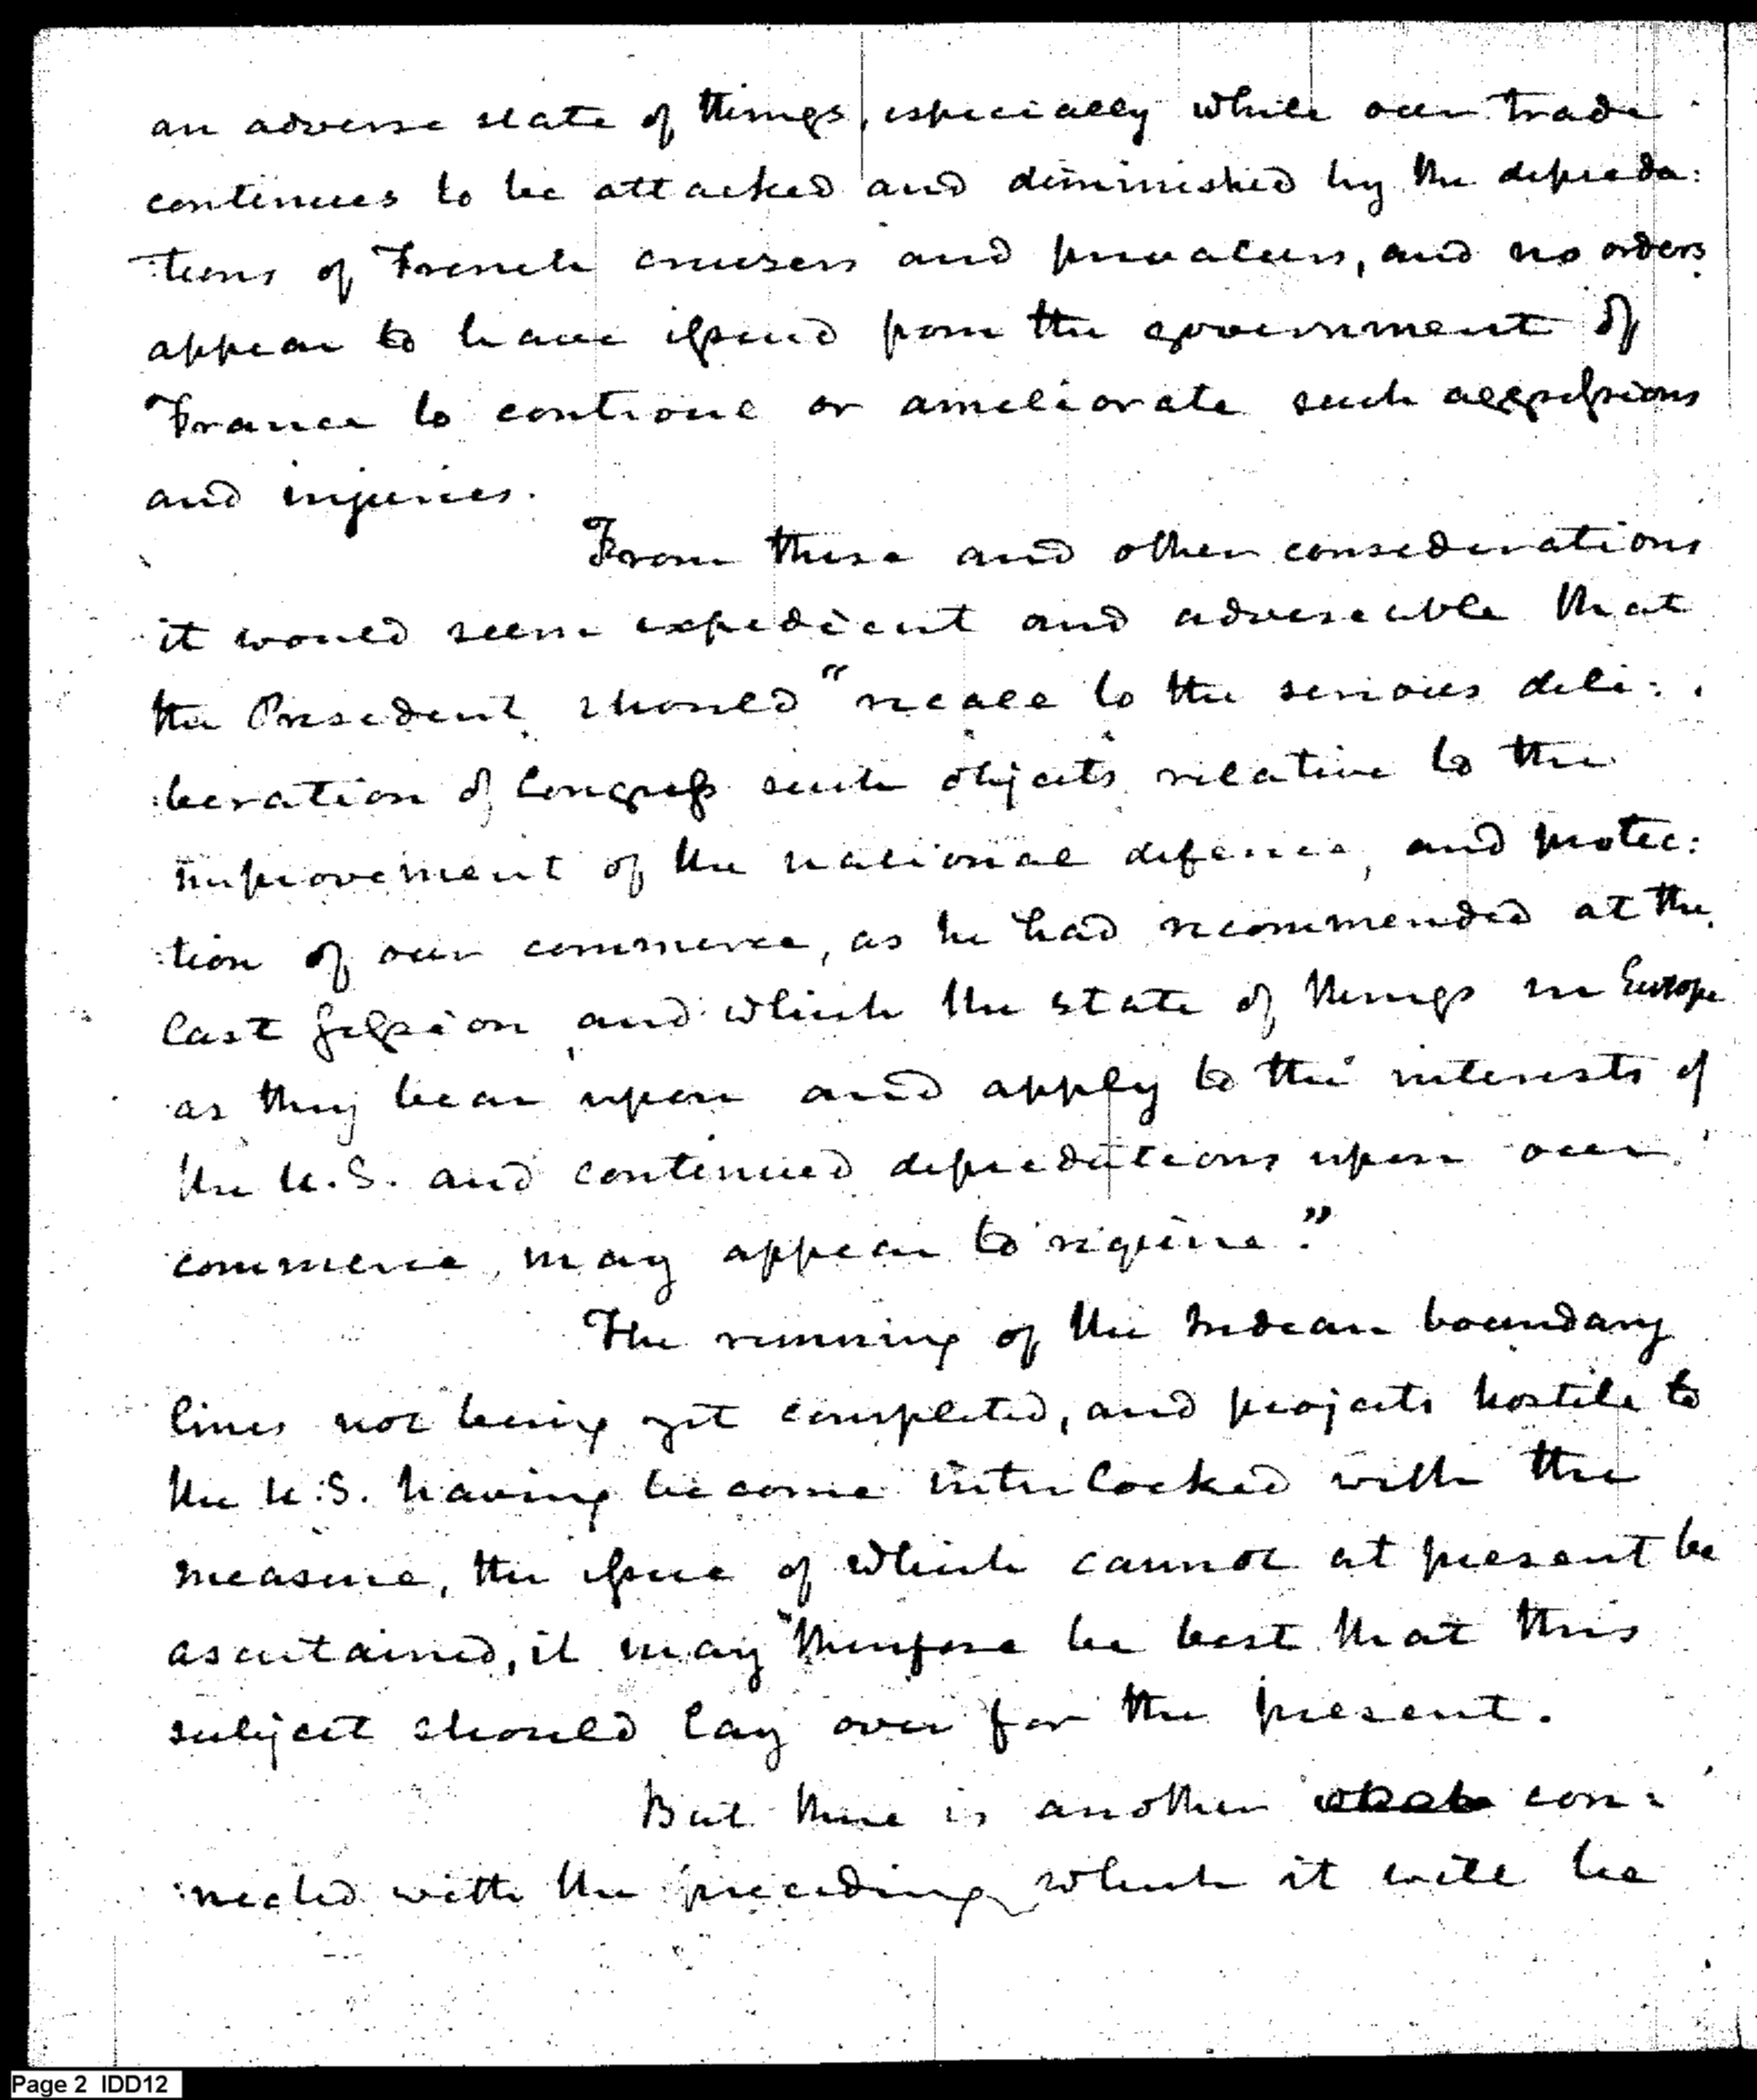 an adverse state of things, especially while our trade
continues to be attacked and diminished by the depreda:
:tions of French cruisers and privateers, and no orders
appear to have issued from the government of
France to controul or ameliorate such aggressions
and injuries.
From these and other considerations
it would seem expedient and adviseable that
the President should "recall to the serious deli:
:beration of Congress such objects relative to the
improvement of the national defence, and protec:
:tion of our commerce, as he had recommended at the
last Session, and which the state of things in Europe
as they bear upon and apply to the interests of
the U.S. and continued depredations upon our
commerce, may appear to require."
The running of the Indian boundary
lines not being yet completed, and projects hostile to
the U.S. having become interlocked with the
measure, the issue of which cannot at present be
ascertained, it may therefore be best that this
subject should lay over for the present.
But there is another con:
:nected with the preceding which it will be
Page 2 IDD12